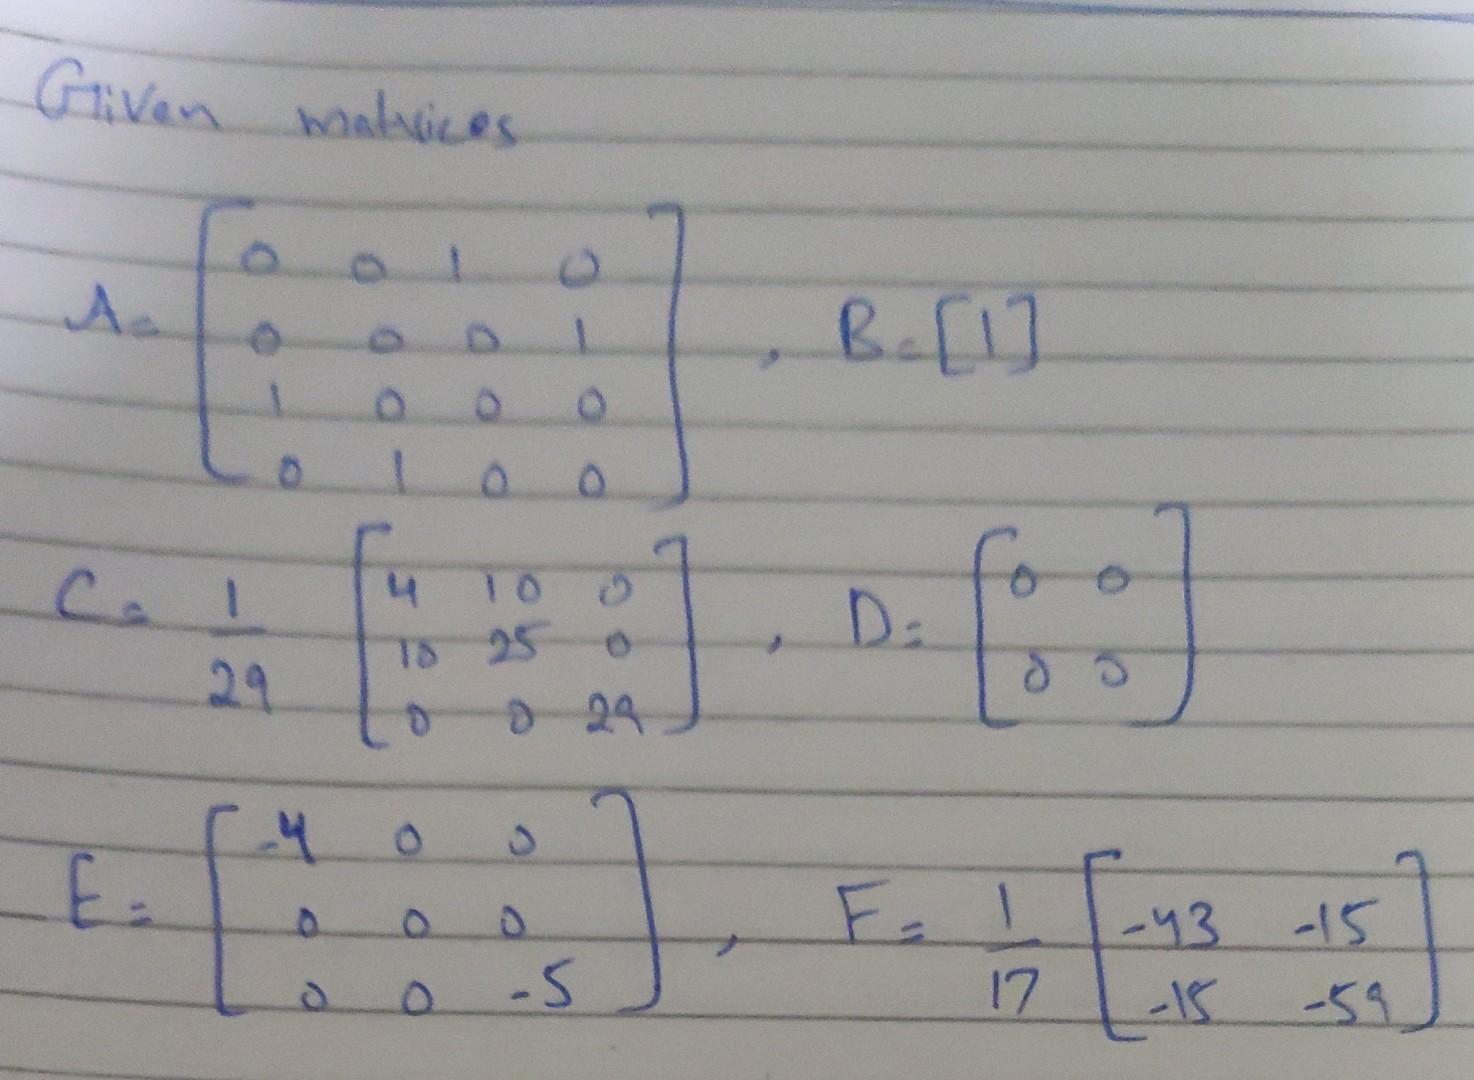 Given matrices
A = [0 0 1 0
0 0 0 1
1 0 0 0
0 1 0 0] , B = [1]
C = 1/29 [4 10 0
10 25 0
0 0 29] , D = [0 0
0 0]
E = [-4 0 0
0 0 0
0 0 -5] , F = 1/17 [-43 -15
-15 -59]